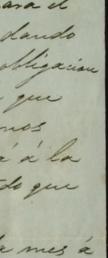 para el
dando
obligacion
que
nos
á á la
do que
da mes á